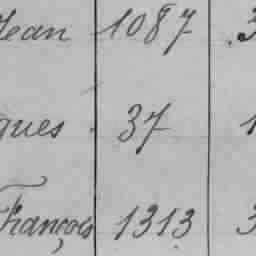 Jean 1087 3
ques. 37 1
François 1313 3